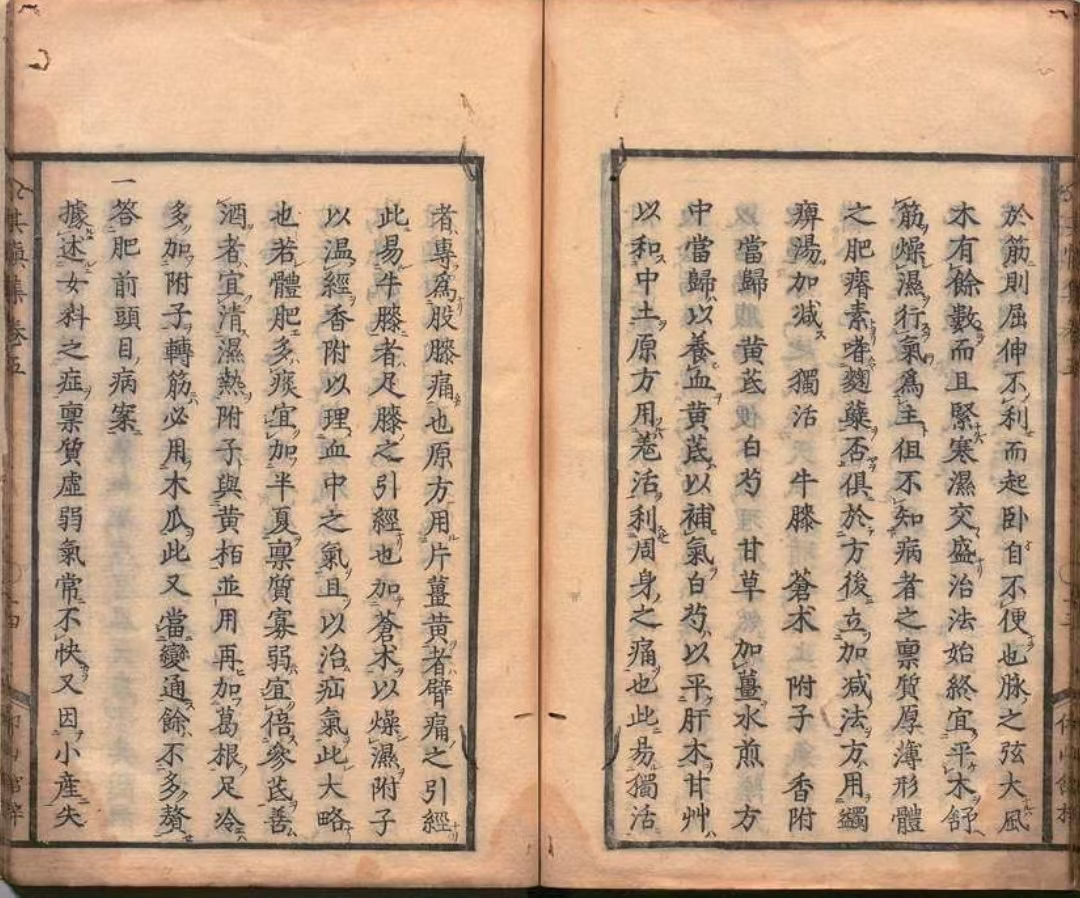 於筋則屈伸不利而起卧自不便也脉之弦大風
木有餘數而且緊寒濕交盛治法始終宜平木舒
筋燥濕行氣爲主但不知病者之禀質厚薄形體
之肥瘠素嗜麴蘖否俱於方後立加減法方用蠲
痹湯加減 獨活 牛膝 蒼术 附子 香附
當歸 黄芪 白芍 甘草 加薑水煎 方
中當歸以養血黄芪以補氣白芍以平肝木甘艸
以和中土原方用羗活利周身之痛也此易獨活
者專爲股膝痛也原方用片薑黄者臂痛之引經
此易牛膝者足膝之引經也加蒼术以燥濕附子
以温經香附以理血中之氣且以治疝氣此大略
也若體肥多痰宜加半夏禀質寡弱宜倍參芪善
酒者宜清濕熱附子與黄栢並用再加葛根足冷
多加附子轉筋必用木瓜此又當變通餘不多贅
一答肥前頭目病案
據述女科之症禀質虛弱氣常不快又因小產失
卷五